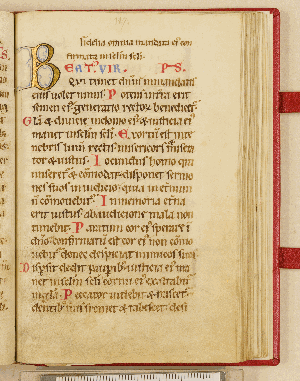 fidelia omnia mandata ei con
firmata in sclm scli.
BEAT' VIR. PS.
Qui timet dnm in mandatis
eius volet nimis. Potens in tra erit
semen ei generatio rector benedicet.
Gla & divicie in domo ei & iusticia ei
manet in sclm scli. Exortu est inte
nebris lum rectis misericors & misera
tor & iustus. Iocundus homo qui
miseret & comodat disponet sermo
nes suos in iudicio quia in eternum
n comovebit. In memoria etna
erit iustus ab auditione mala non
timebit. Paratum cor ei sperare i
dno confirmatu est cor ei non como
vebit donec despiciat inimicos suos
Dispsit dedit paupib iusticia ei ma
net in sclm scli cornu ei exaltabit
in gla. Peccator videbit & irascet
dentib suis fremet & tabescet desi